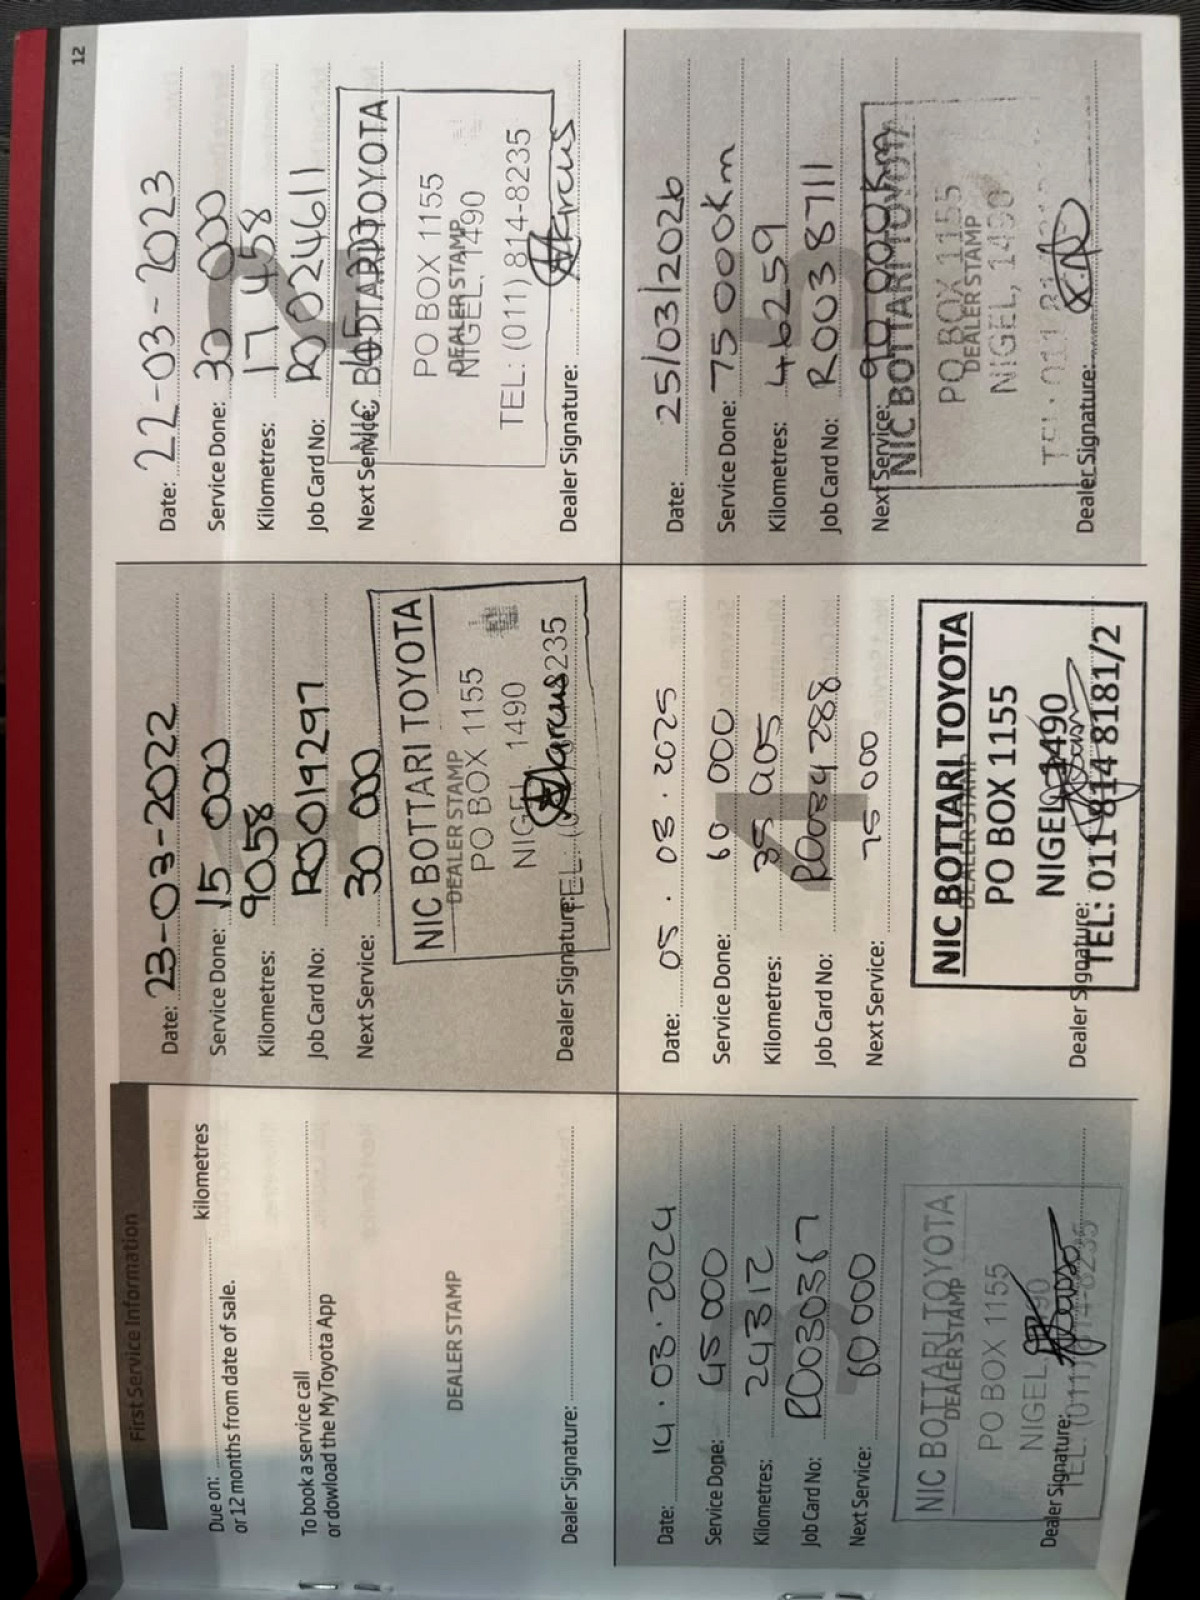 12
First Service Information
Due on: kilometres
or 12 months from date of sale.
To book a service call
or dowload the MyToyota App
DEALER STAMP
Dealer Signature:
1
Date: 23-03-2022
Service Done: 15 000
Kilometres: 9058
Job Card No: R0019297
Next Service: 30 000
NIC BOTTARI TOYOTA
DEALER STAMP
PO BOX 1155
NIGEL 1490
Marcus
TEL: 235
Dealer Signature:
2
Date: 22-03-2023
Service Done: 30 000
Kilometres: 17 458
Job Card No: R0024611
Next Service:
NIC BOTTARI TOYOTA
PO BOX 1155
DEALER STAMP
NIGEL, 1490
TEL: (011) 814-8235
Marcus
Dealer Signature:
3
Date: 14.03.2024
Service Done: 45 000
Kilometres: 24312
Job Card No: R0030367
Next Service: 60 000
NIC BOTTARI TOYOTA
DEALER STAMP
PO BOX 1155
NIGEL, 1490
TEL: (011) 814-8235
Dealer Signature:
4
Date: 05.03.2025
Service Done: 60 000
Kilometres: 35 905
Job Card No: R0034288
Next Service: 75 000
NIC BOTTARI TOYOTA
DEALER STAMP
PO BOX 1155
NIGEL 1490
TEL: 011 814 8181/2
Dealer Signature:
5
Date: 25/03/2026
Service Done: 75 000km
Kilometres: 46259
Job Card No: R0038711
Next Service: 90 000km
NIC BOTTARI TOYOTA
PO BOX 1155
DEALER STAMP
NIGEL, 1490
TEL: 011
Dealer Signature: